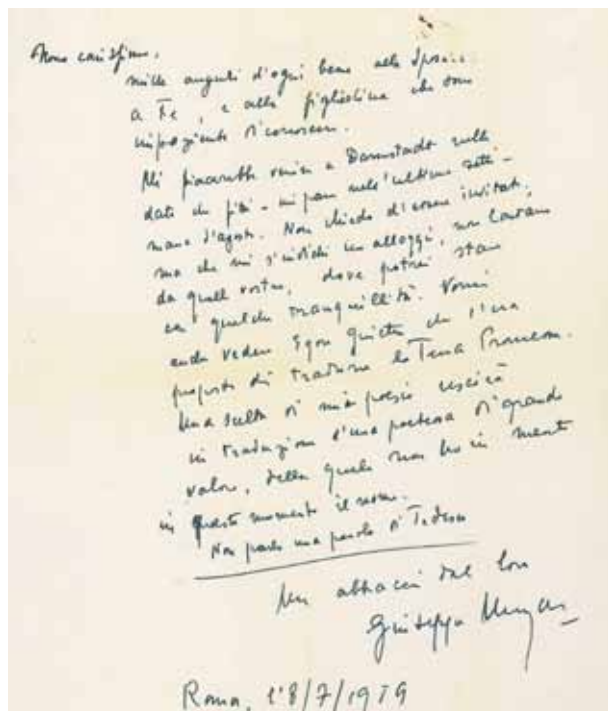 Nono carissimo,
mille auguri d'ogni bene alla Sposa,
a Te, e alla figliolina che sono
impaziente di conoscere.
Mi piacerebbe venire a Darmstadt nelle
date che - mi pare nell'ultima setti-
mana d'agosto. Non chiedo d'essere invitato,
ma che mi s'indichi un alloggio, non lontano
da quello vostro, dove potrei stare
con qualche tranquillità. Vorrei
anche vedere Egon che s'era
proposto di tradurre la Terra Promessa.
Una scelta di mie poesie uscirà
in traduzione d'una poetessa di grande
valore, della quale non ho in mente
in questo momento il nome.
Non parlo una parola di Tedesco
Un abbraccio dal tuo
Giuseppe Ungaretti
Roma, l'8/7/1959